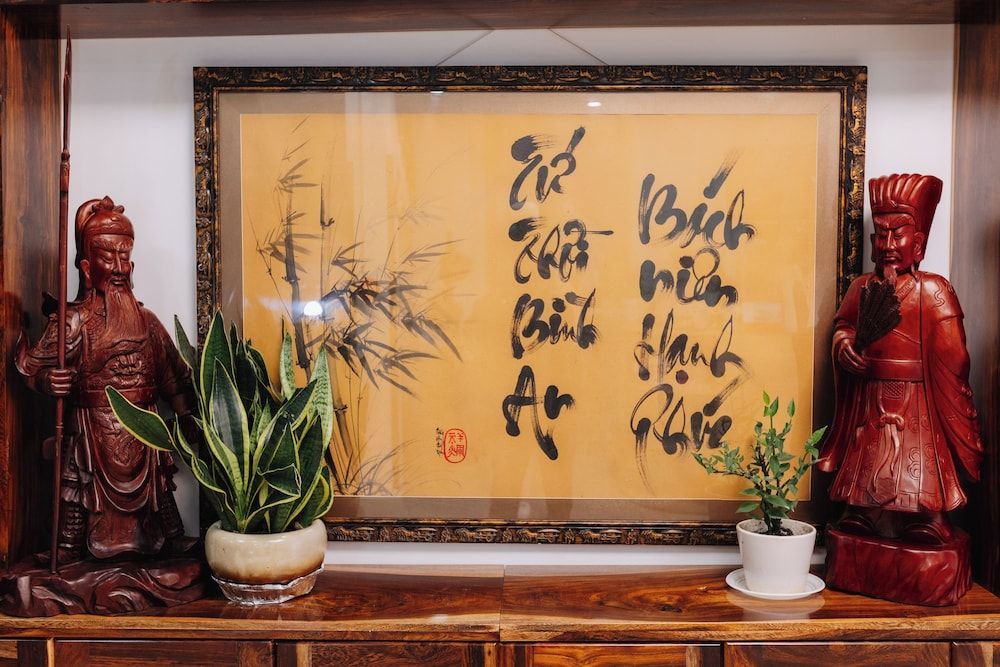 Tứ
Thời
Bình
An
Bách
niên
Hạnh
Phúc